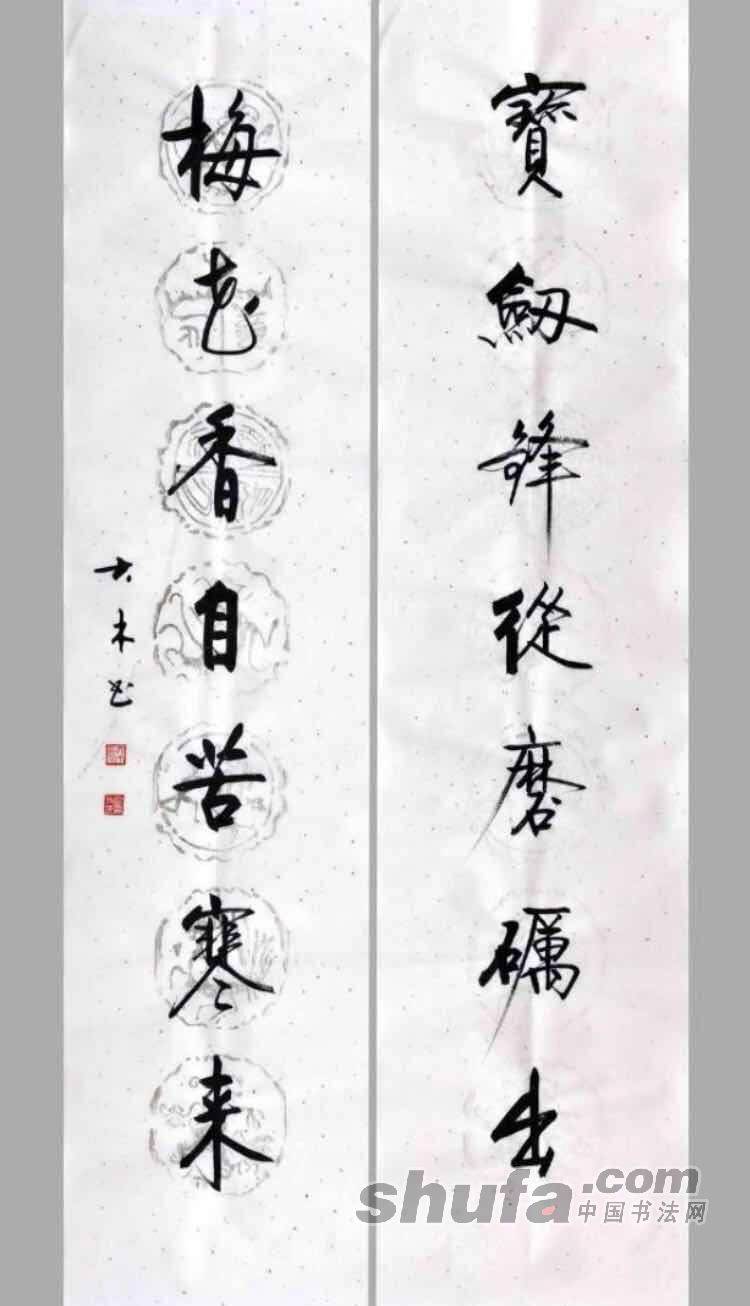 寶劔鋒從磨礪出
梅花香自苦寒来
大木书
shufa.com
中国书法网